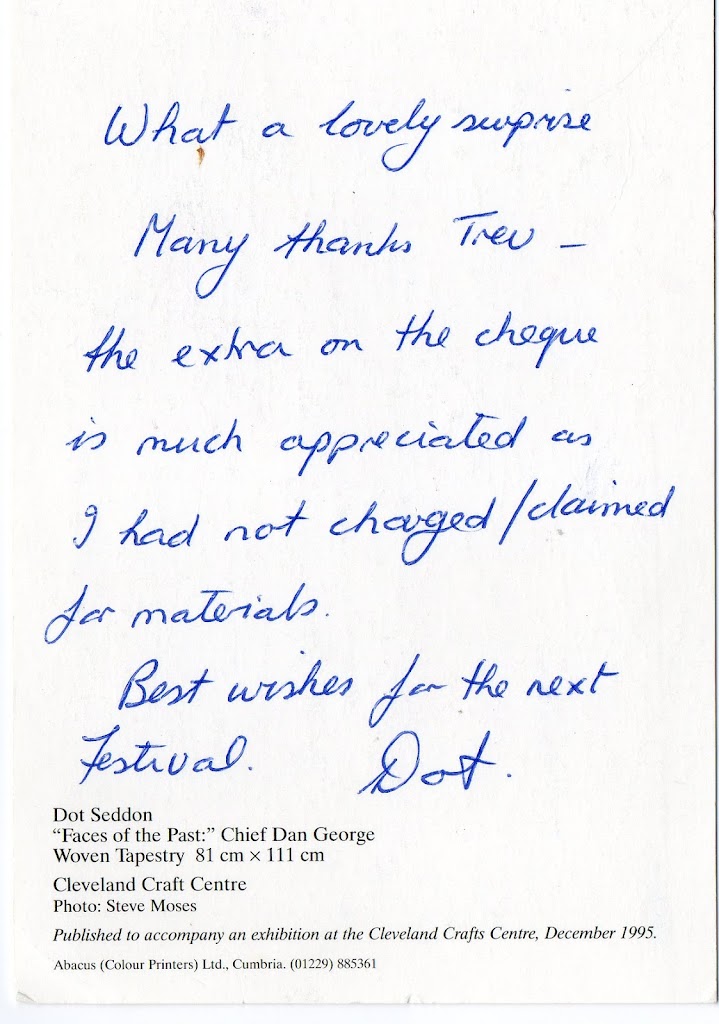 What a lovely surprise
Many thanks Trev –
the extra on the cheque
is much appreciated as
I had not charged/claimed
for materials.
Best wishes for the next
Festival. Dot.
Dot Seddon
“Faces of the Past:” Chief Dan George
Woven Tapestry 81 cm × 111 cm
Cleveland Craft Centre
Photo: Steve Moses
Published to accompany an exhibition at the Cleveland Crafts Centre, December 1995.
Abacus (Colour Printers) Ltd., Cumbria. (01229) 885361